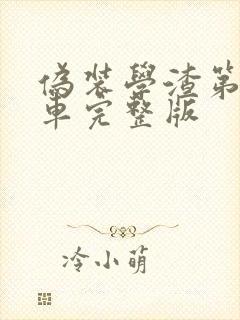 偽裝學渣第
車完整版
冷小萌